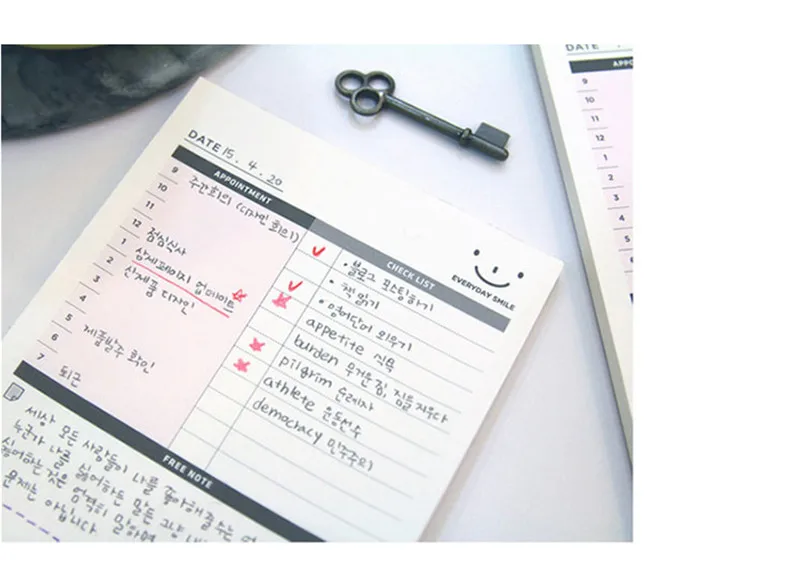 DATE 15. 4. 20
APPOINTMENT
9 주간회의 (디자인 회의)
10
11
12 점심식사
1 상세페이지 업데이트
2 신제품 디자인
3
4
5 제품발주 확인
6
7 퇴근
EVERYDAY SMILE
CHECK LIST
• 블로그 포스팅하기
• 책 읽기
• 영어단어 외우기
appetite 식욕
burden 무거운 짐, 짐을 지우다
pilgrim 순례자
athlete 운동선수
democracy 민주주의
FREE NOTE
세상 모든 사람들이 나를 좋아해 줄 수는
누군가 나를 싫어하든 말든 그냥
싫어하는 것은 엄격히 말하면
문제는 아닙니다
DATE
APPO
9
10
11
12
1
2
3
4
5
6